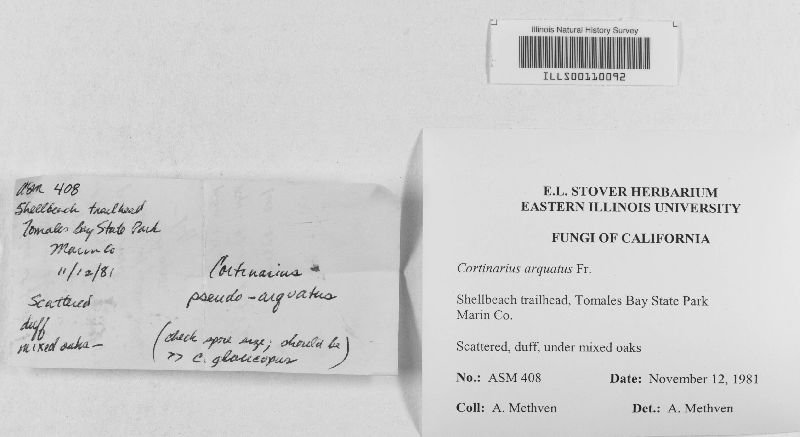 Illinois Natural History Survey
ILLS00110092
ASM 408
Shellbeach trailhead
Tomales Bay State Park
Marin Co
11/12/81
Scattered
duff
mixed oaks -
Cortinarius
pseudo-arquatus
(check spore size; should be
>> C. glaucopus)
E.L. STOVER HERBARIUM
EASTERN ILLINOIS UNIVERSITY
FUNGI OF CALIFORNIA
Cortinarius arquatus Fr.
Shellbeach trailhead, Tomales Bay State Park
Marin Co.
Scattered, duff, under mixed oaks
No.: ASM 408 Date: November 12, 1981
Coll: A. Methven Det.: A. Methven